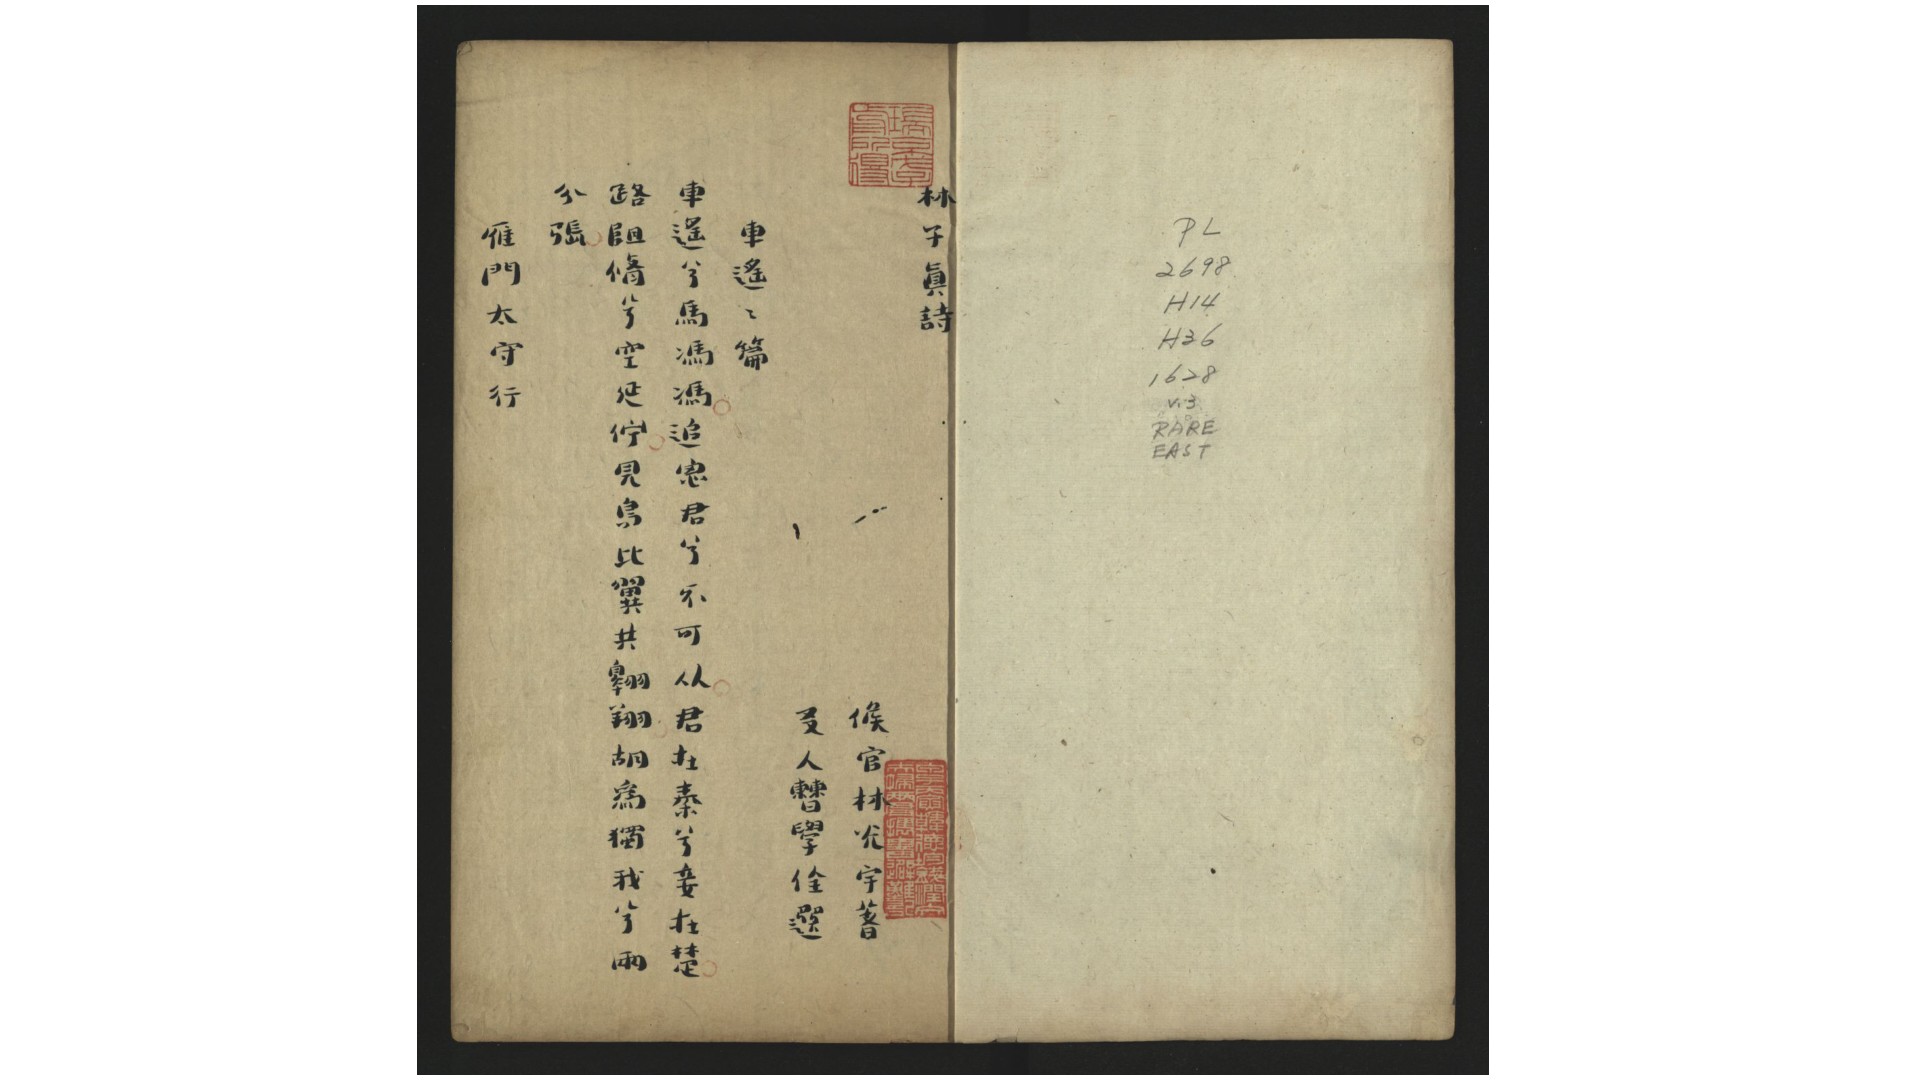 PL
2698
H14
H36
1628
v.3
RARE
EAST
林子眞詩
候官林光宇著
友人曹學佺選
車遙〻篇
車遙兮馬馮馮追思君兮不可从君在秦兮妾在楚
路阻脩兮空延佇見鳥比翼共翱翔胡爲獨我兮兩
分張
雁門太守行